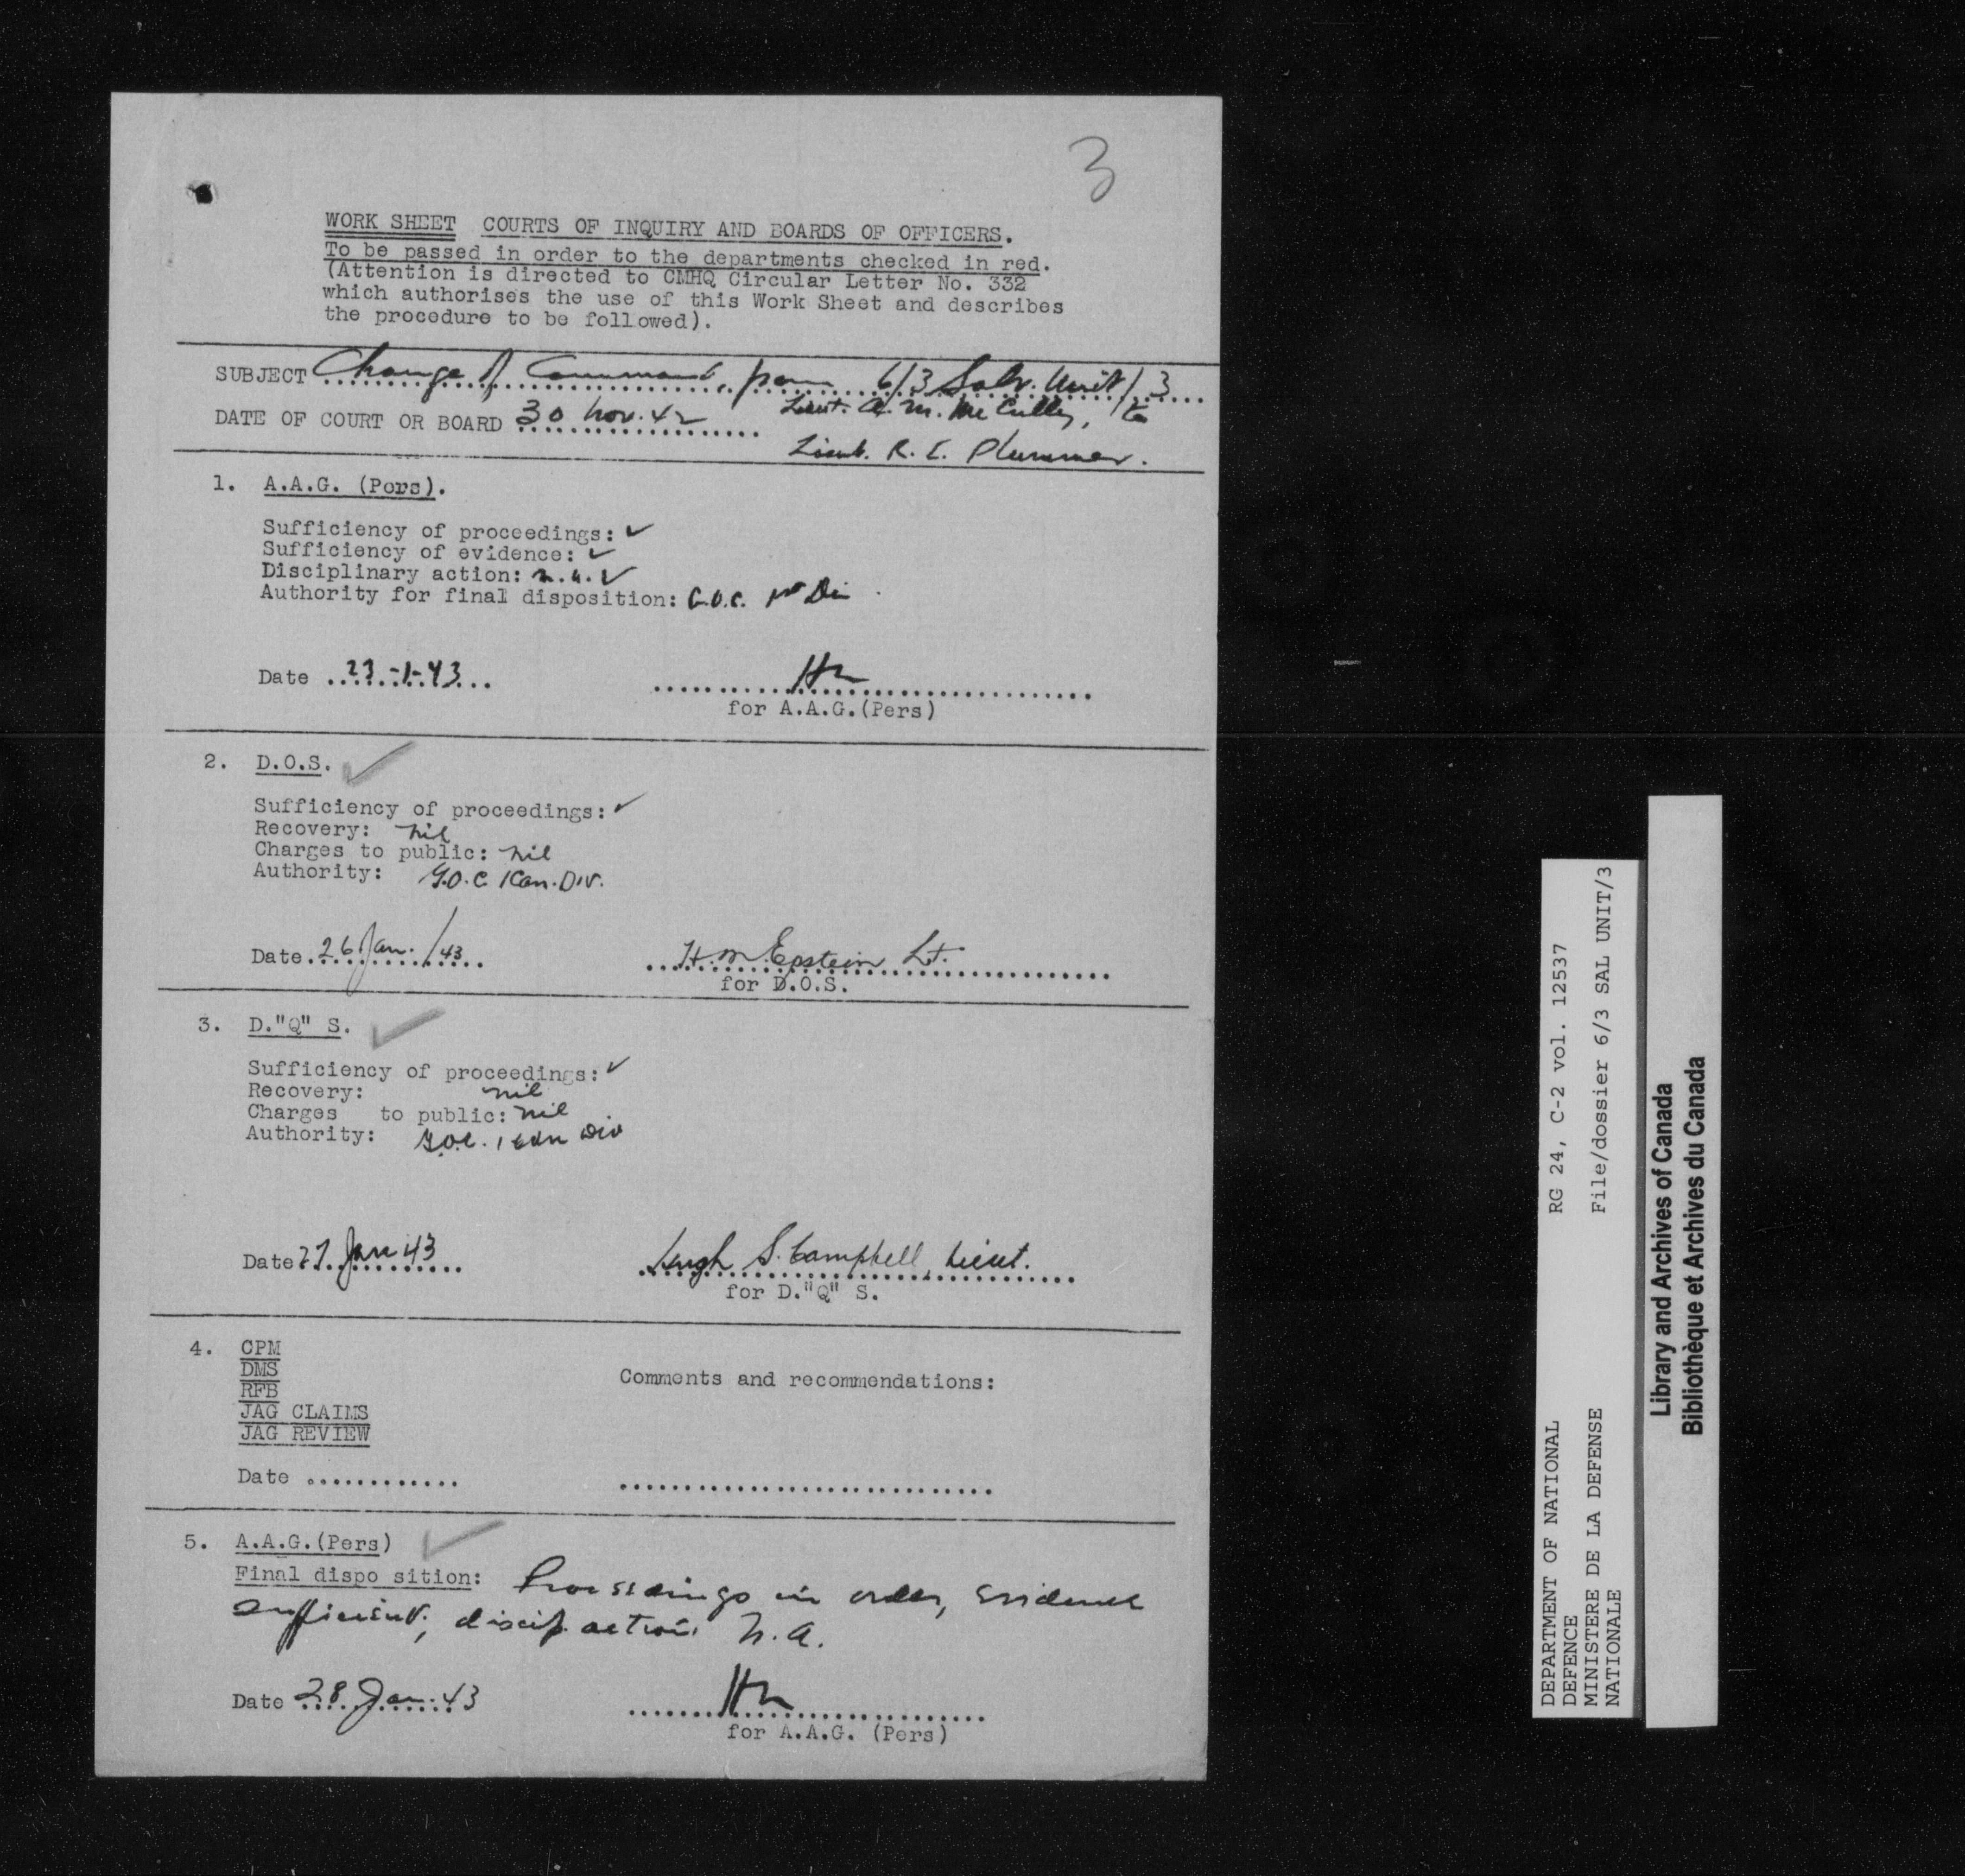 3
WORK SHEET COURTS OF INQUIRY AND BOARDS OF OFFICERS.
To be passed in order to the departments checked in red.
(Attention is directed to CMHQ Circular Letter No. 332
which authorises the use of this Work Sheet and describes
the procedure to be followed).
SUBJECT Change of Command, from 6/3 Salv. Unit/3
DATE OF COURT OR BOARD 30 Nov. 42 Lieut. A. M. McCully, to
Lieut. R. E. Plummer.
1. A.A.G. (Pers).
Sufficiency of proceedings: ✓
Sufficiency of evidence: ✓
Disciplinary action: n.a. ✓
Authority for final disposition: G.O.C. Div
Date 23-1-43
for A.A.G.(Pers)
2. D.O.S. ✓
Sufficiency of proceedings: ✓
Recovery: nil
Charges to public: nil
Authority: G.O.C. 1 Can. Div.
Date 26 Jan. /43 H. M. Epstein Lt.
for D.O.S.
3. D."Q" S. ✓
Sufficiency of proceedings: ✓
Recovery: nil
Charges to public: nil
Authority: G.O.C. 1 Cdn Div
Date 27 Jan 43 Hugh S. Campbell, Lieut.
for D."Q" S.
4. CPM
DMS
RFB
JAG CLAIMS
JAG REVIEW
Comments and recommendations:
Date ............
5. A.A.G.(Pers) ✓
Final dispo sition: Proceedings in order, evidence
sufficient, discip. action N.A.
Date 28 Jan. 43
for A.A.G. (Pers)
DEPARTMENT OF NATIONAL
DEFENCE
MINISTERE DE LA DEFENSE
NATIONALE
RG 24, C-2 vol. 12537
File/dossier 6/3 SAL UNIT/3
Library and Archives of Canada
Bibliothèque et Archives du Canada